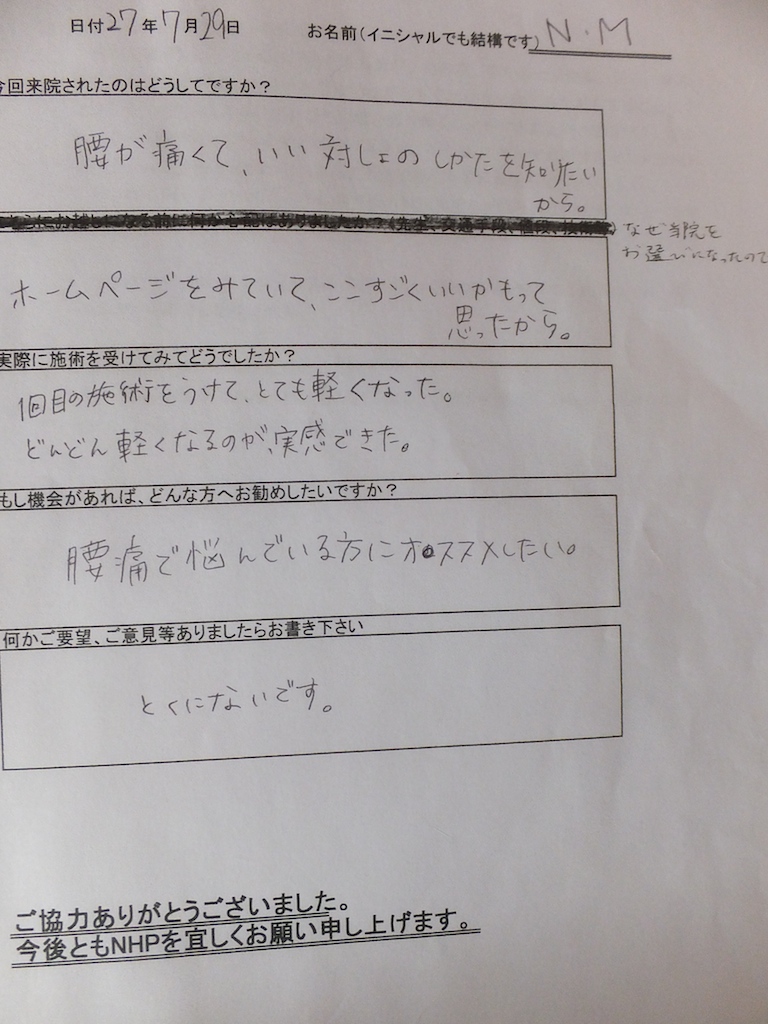 日付27年7月29日 お名前(イニシャルでも結構です) N・M
今回来院されたのはどうしてですか?
腰が痛くて、いい対しょのしかたを知りたい
から。
こちらにお越しになる前に何か心配はありましたか?(先生、交通手段、値段、技術等)
なぜ当院を
お選びになったので
ホームページをみていて、ここすごくいいかもって
思ったから。
実際に施術を受けてみてどうでしたか?
1回目の施術をうけて、とても軽くなった。
どんどん軽くなるのが、実感できた。
もし機会があれば、どんな方へお勧めしたいですか?
腰痛で悩んでいる方にオススメしたい。
何かご要望、ご意見等ありましたらお書き下さい
とくにないです。
ご協力ありがとうございました。
今後ともNHPを宜しくお願い申し上げます。